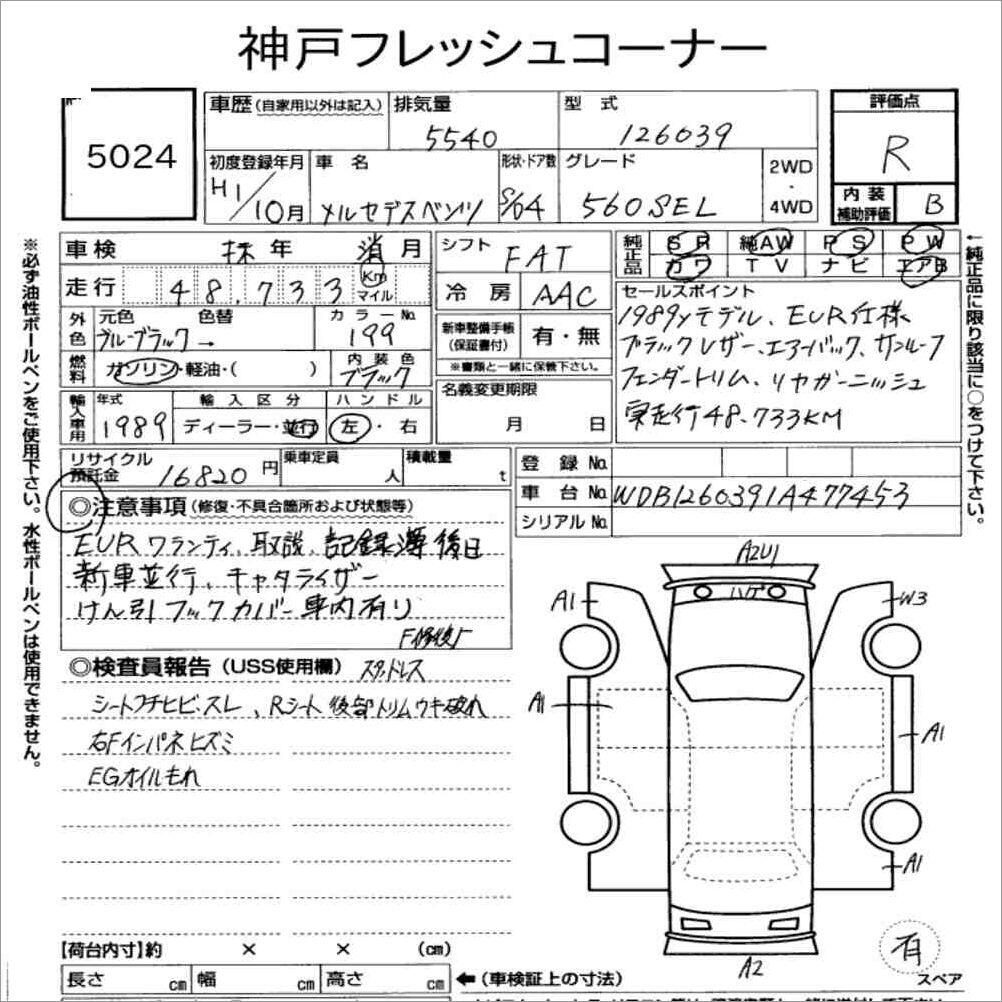 神戸フレッシュコーナー
5024
車歴 (自家用以外は記入)
排気量
5540
型 式
126039
評価点
R
初度登録年月
H1/10月
車 名
メルセデスベンツ
形状・ドア数
S/D4
グレード
560SEL
2WD
・
4WD
内装
補助評価
B
※必ず油性ボールペンをご使用下さい。水性ボールペンは使用できません。
車検 抹 年 消 月
走行 48.733 Km マイル
シフト
FAT
冷房 AAC
純正品
SR 純AW PS PW
カワ TV ナビ エアB
←純正品に限り該当に○をつけて下さい。
外色
元色 色替
ブルーブラック→
カラーNo.
199
燃料
ガソリン・軽油・( )
内装色
ブラック
新車整備手帳
(保証書付)
有・無
※書類と一緒に保管下さい。
名義変更期限
月 日
セールスポイント
1989yモデル、EUR仕様
ブラックレザー、エアーバック、サンルーフ
フェンダートリム、リヤガーニッシュ
実走行48.733KM
輸入車用
年式
1989
輸入区分
ディーラー・並行
ハンドル
左・右
リサイクル
預託金 16820 円
乗車定員
人
積載量
t
登録No.
車台No. WDB1260391A477453
シリアルNo.
◎注意事項 (修復・不具合箇所および状態等)
EURワランティ、取説、記録簿後日
新車並行、キャタライザー
けん引フックカバー車内有り
F修復歴
◎検査員報告 (USS使用欄) スタッドレス
シートフチヒビ・スレ、Rシート後部トリムウキ破れ
右Fインパネヒズミ
EGオイルもれ
A2U1
ハゲ
A1
W3
A1
A1
A1
A2
有
スペア
【荷台内寸】約 × × (cm)
長さ cm 幅 cm 高さ cm ←(車検証上の寸法)